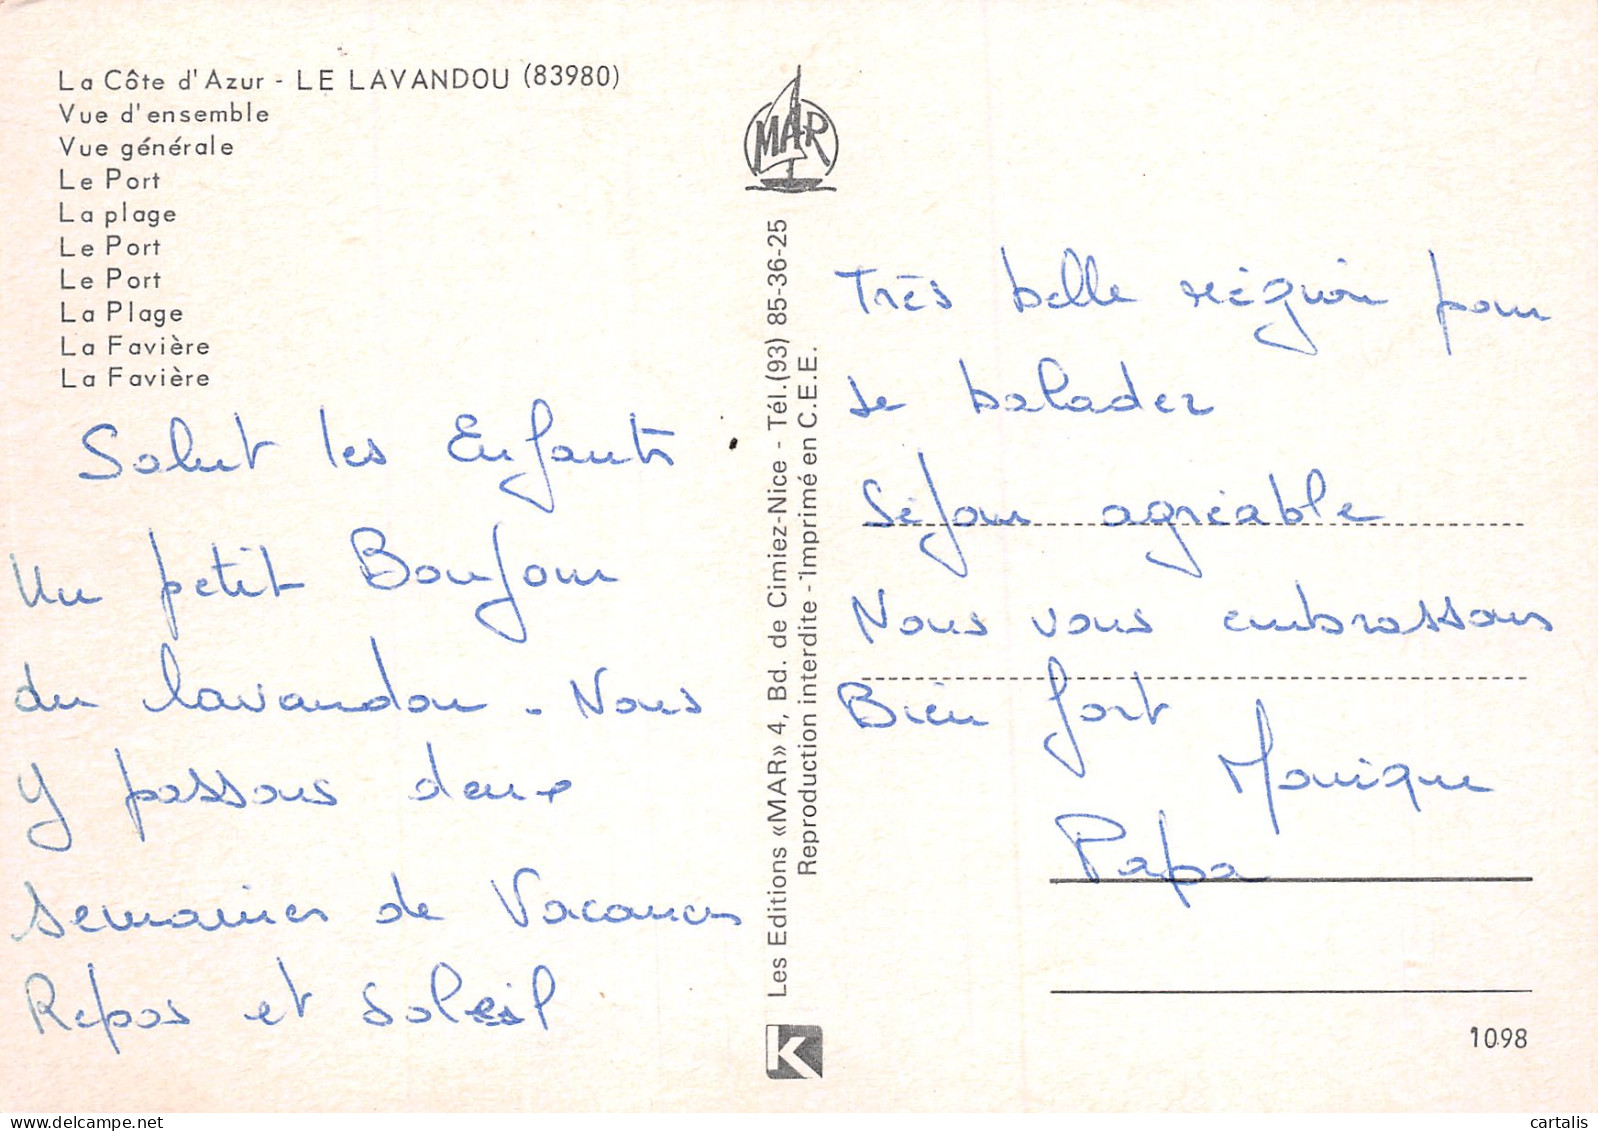 La Côte d'Azur - LE LAVANDOU (83980)
Vue d'ensemble
Vue générale
Le Port
La plage
Le Port
Le Port
La Plage
La Favière
La Favière
Salut les Enfants
Un petit Bonjour
du lavandou. Nous
y passons deux
semaines de Vacances
Repos et soleil
MAR
Les Editions «MAR» 4, Bd. de Cimiez-Nice - Tél.(93) 85-36-25
Reproduction interdite - Imprimé en C.E.E.
K
Très belle région pour
se balader
Séjour agréable
Nous vous embrassons
Bien fort
Monique
Papa
1098
cartalis